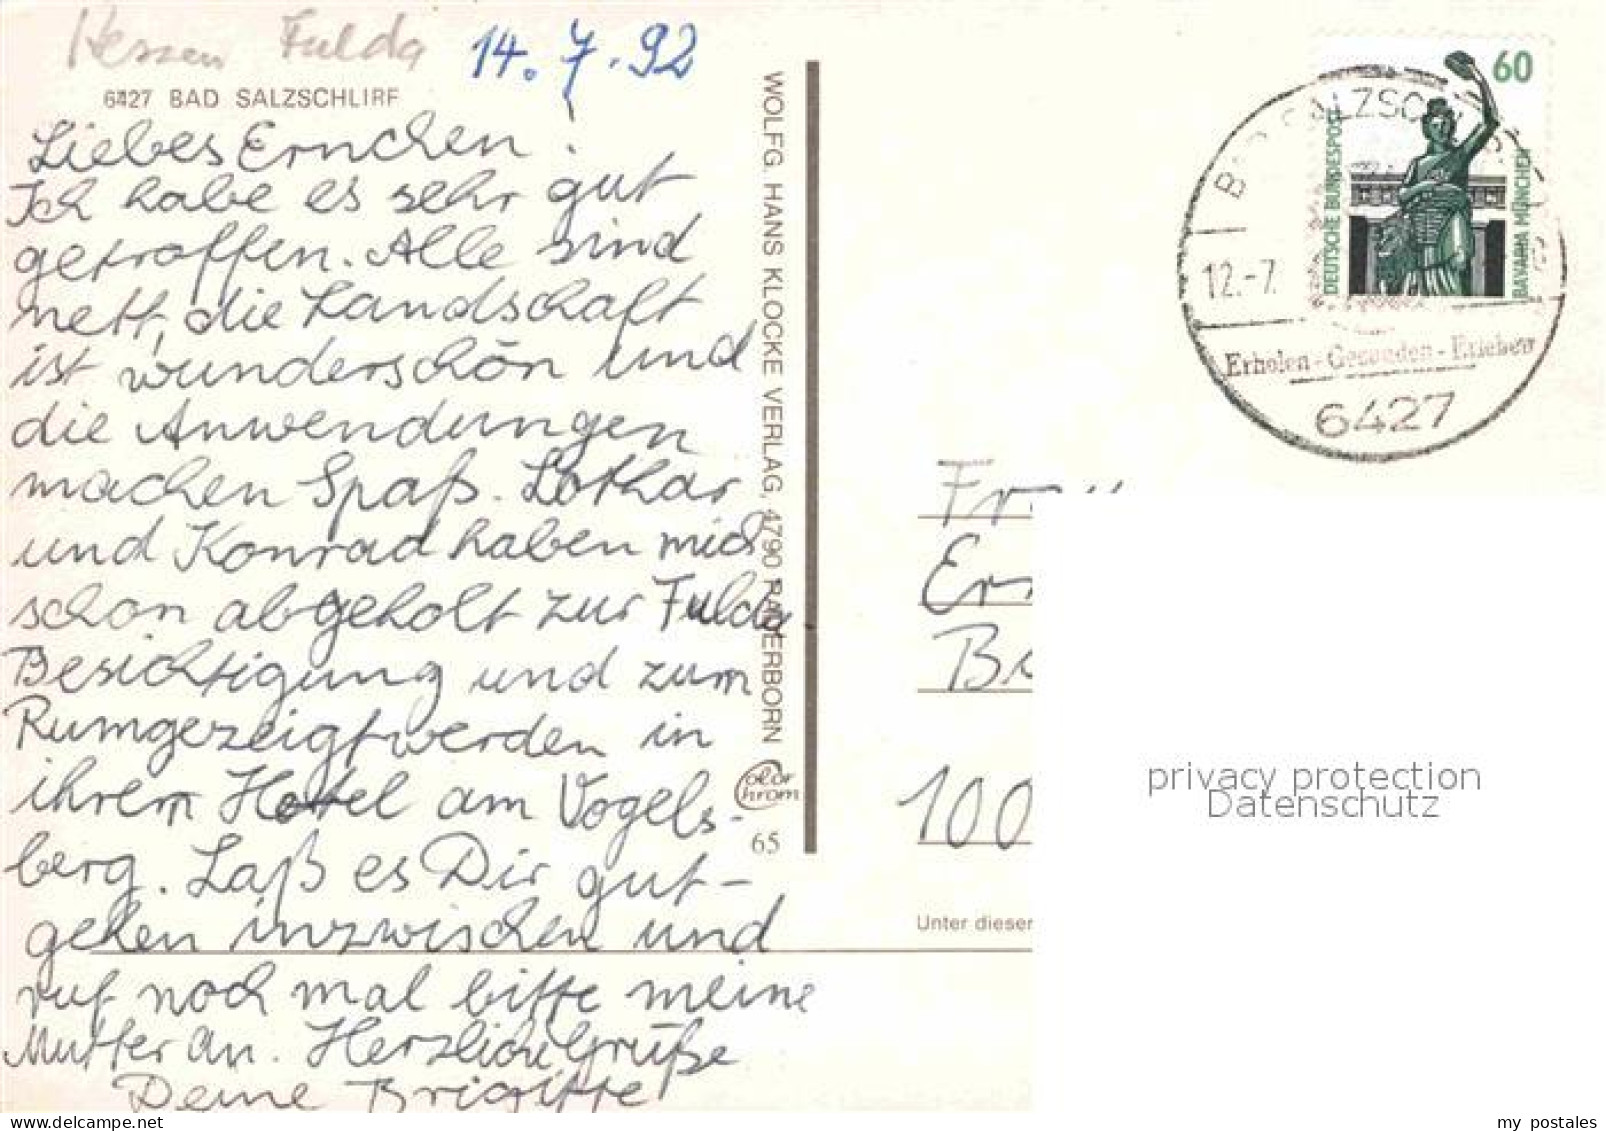 Hessen Fulda 14.7.92
6427 BAD SALZSCHLIRF
Liebes Ernchen!
Ich habe es sehr gut
getroffen. Alle sind
nett, die Landschaft
ist wunderschön und
die Anwendungen
machen Spaß. Lothar
und Konrad haben mich
schon abgeholt zur Fulda
Besichtigung und zum
Rumgezeigtwerden in
ihrem Hotel am Vogels-
berg. Laß es Dir gut-
gehen inzwischen und
ruf noch mal bitte meine
Mutter an. Herzliche Grüße
Deine Brigitte
WOLFG. HANS KLOCKE VERLAG, 4790 PADERBORN
Color
Chrom
65
60
DEUTSCHE BUNDESPOST
BAVARIA MÜNCHEN
12.-7.
Erholen-Gesunden-Erleben
6427
100
Unter dieser
privacy protection
Datenschutz
my postales